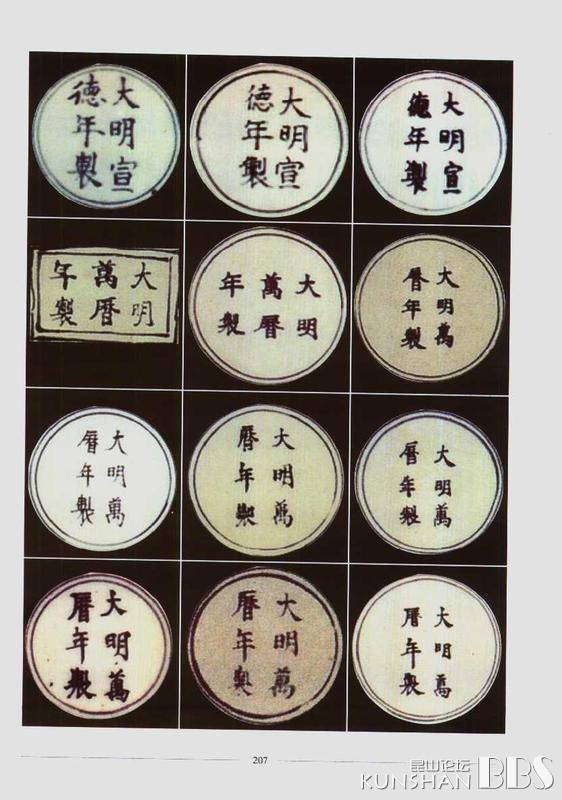 大明宣
德年製
大明宣
德年製
大明宣
德年製
大明
萬曆
年製
大明
萬曆
年製
大明萬
曆年製
大明萬
曆年製
大明萬
曆年製
大明萬
曆年製
大明萬
曆年製
大明萬
曆年製
大明萬
曆年製
207
昆山论坛
KUNSHAN BBS